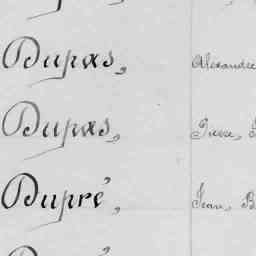 Dupas, Alexandre
Dupas, Pierre,
Dupré, Jean, B